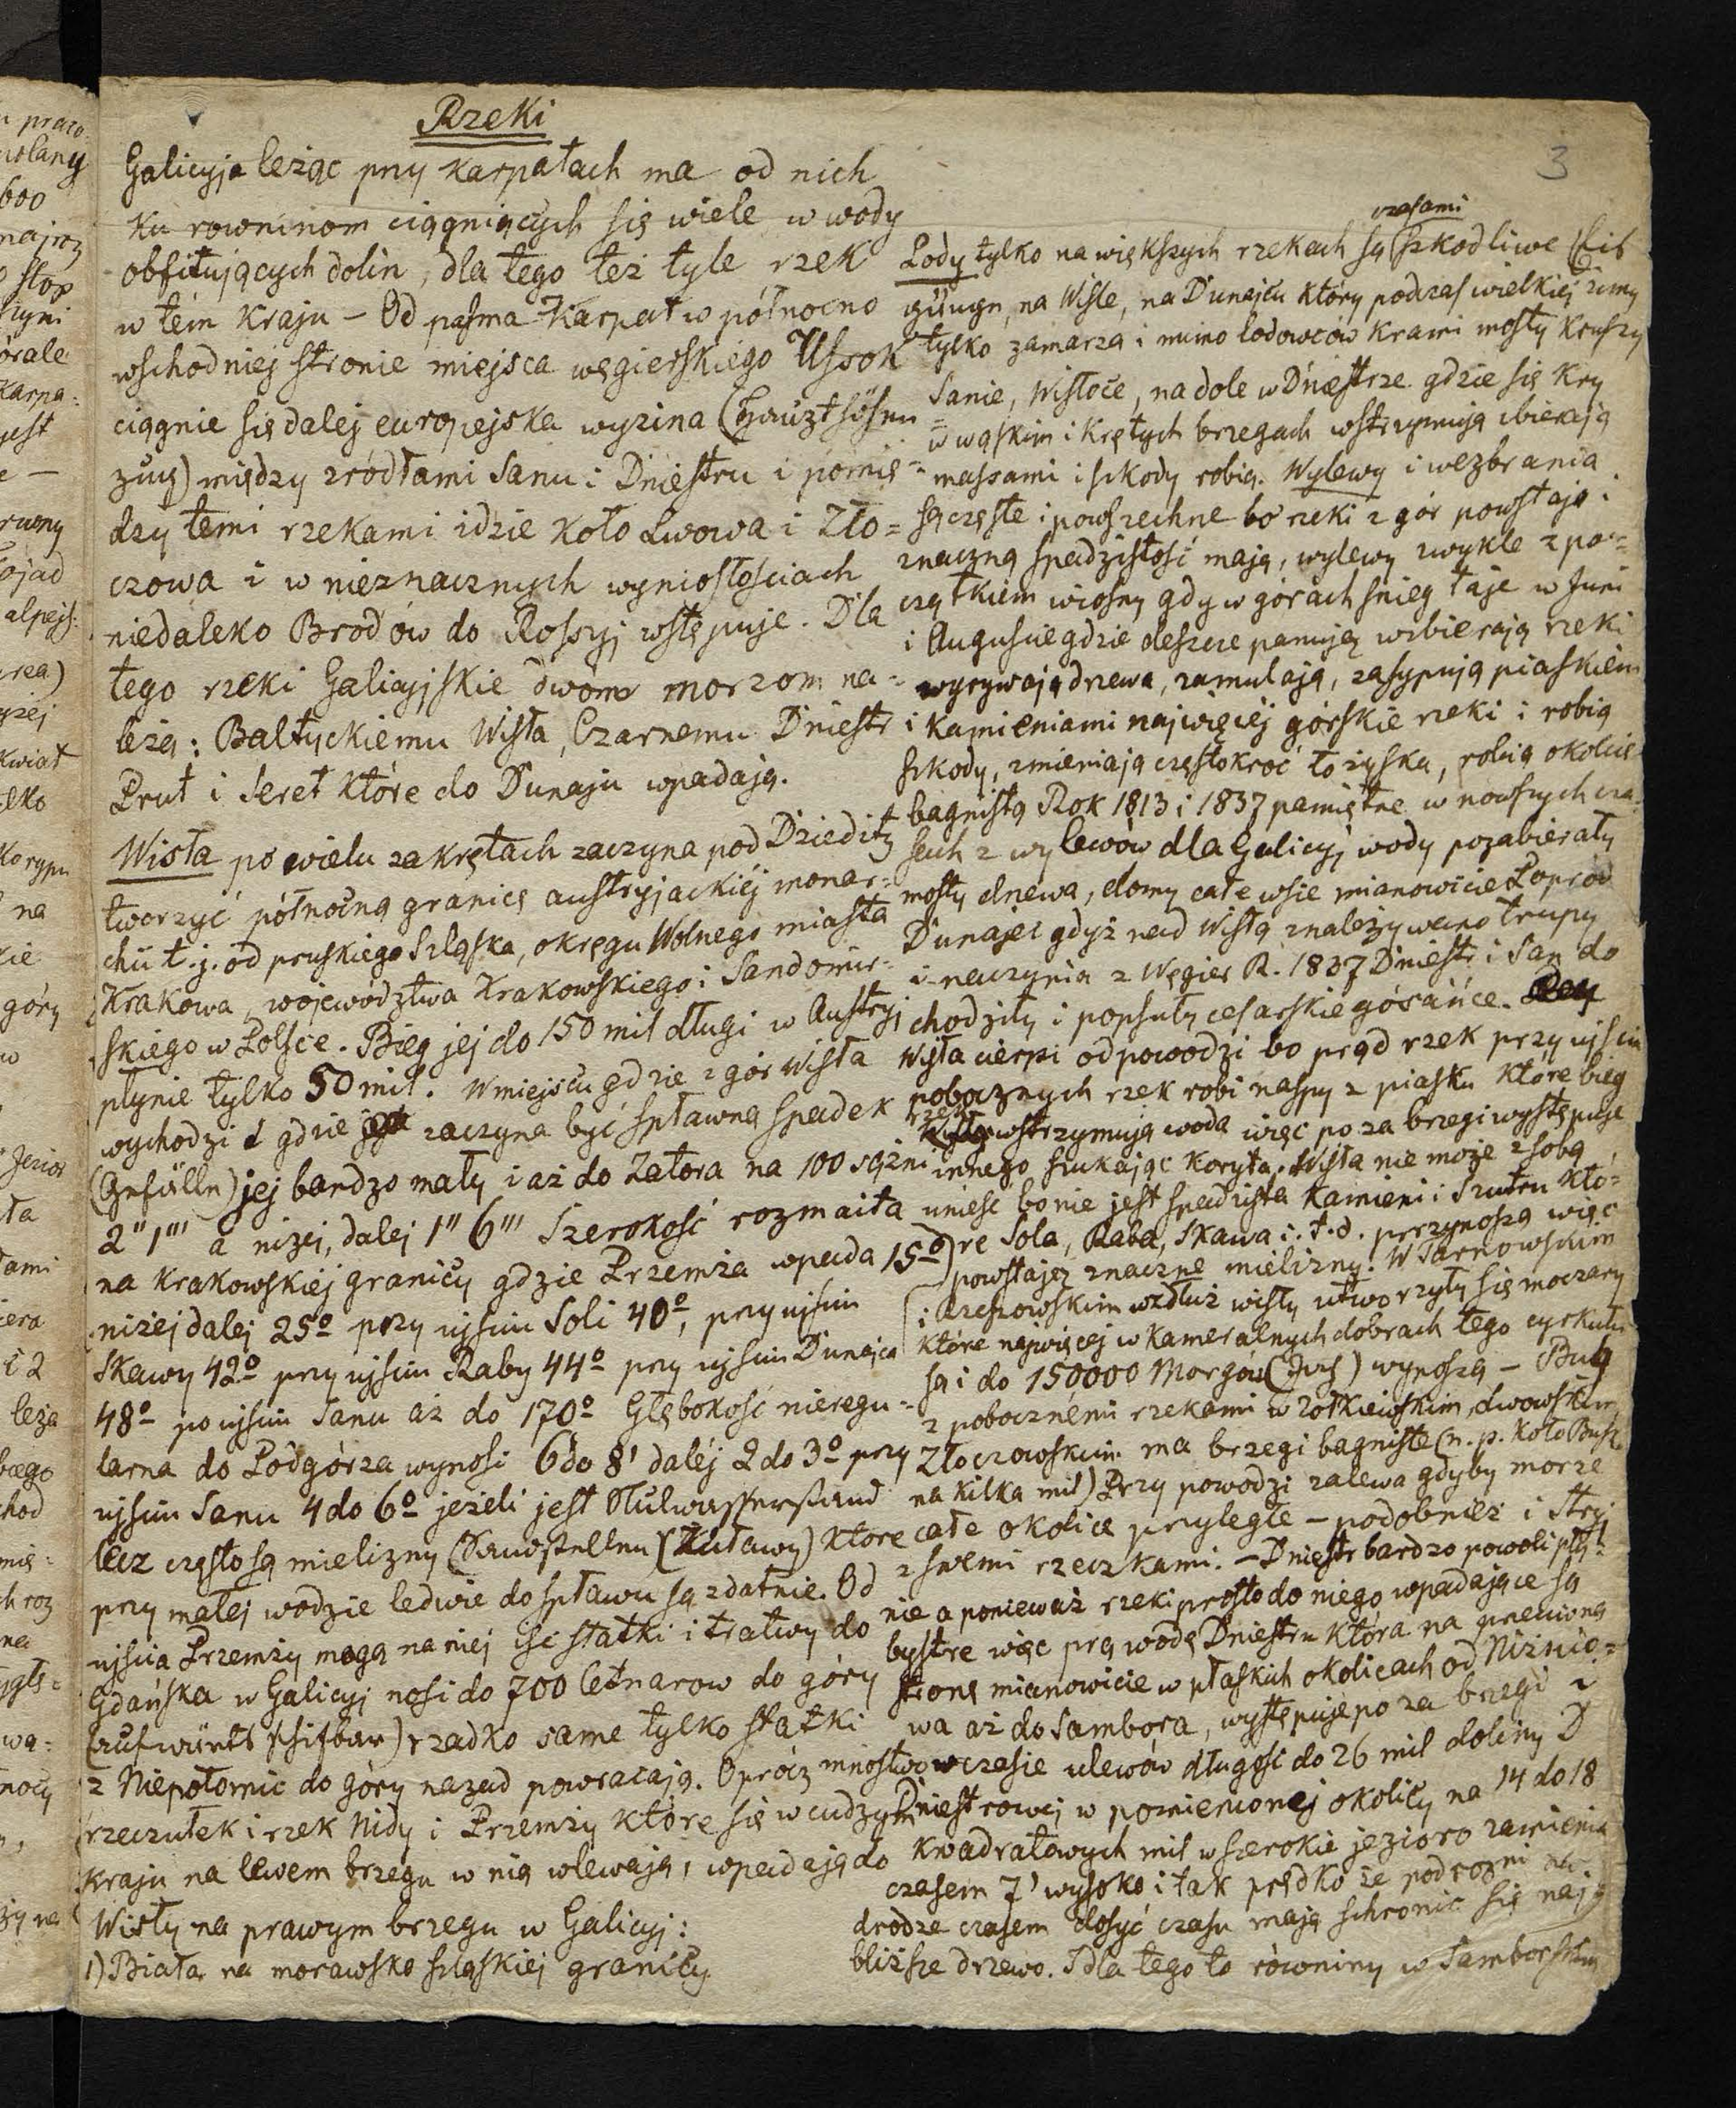 3
Rzeki
Galicyja leżąc przy Karpatach ma od nich
ku rowninom ciągniących się wiele w wody
obfitujących dolin, dla tego też tyle rzek
w tém kraju – Od pasma Karpat w północno
wschodniej stronie miejsca węgierskiego Ussok
ciągnie się dalej europejska wyzina (Haupthöhen
zug) między zródłami Sanu i Dniestru i pomię=
dzy temi rzekami idzie koło Lwowa i Zło=
czowa i w nieznacznych wyniosłościach
niedaleko Brodów do Rossyj wstępuje. Dla
tego rzeki Galicyjskie dwom morzom na=
leżą: Baltyckiemu Wisła, Czarnemu Dniestr
Prut i Seret które do Dunaju wpadają.
Wisła po wielu zakrętach zaczyna pod Dzieditz
tworzyć północną granicę austryjackiéj monar=
chii t.j. od pruskiego Szląska, okręgu Wolnego miasta
Krakowa, województwa Krakowskiego i Sandomir=
skiego w Polsce. Bieg jej do 150 mil długi w Austryj
płynie tylko 50 mil. W miejscu gdzie z gór Wisła
wychodzi i gdzie zaczyna być spławną spadek
(Gefälle) jej bardzo mały i aż do Zatora na 100 sążni
2" 1"' a niżej, dalej 1" 6"' Szerokość rozmaita
na krakowskiéj granicy gdzie Przemża wpada 15º
niżej dalej 25º przy ujściu Soli 40º, przy ujściu
Skawy 42º przy ujściu Raby 44º przy ujściu Dunajca
48º po ujściu Sanu aż do 170º Głębokość nieregu=
larna do Podgórza wynosi 6 do 8' daléj 2 do 3º przy
ujściu Sanu 4 do 6º jeżeli jest Nullwasserstand
lecz często są mielizny (Sandstellen) które
przy małej wodzie ledwie do spławu są zdatnie. Od
ujścia Przemży mogą na niej iść statki i tratwy do
Gdańska w Galicyj nosi do 700 Cetnarow do góry
(aufwärts schifbar) rzadko same tylko statki
z Niepołomic do góry nazad powracają. Oprócz mnóstwo
rzeczułek i rzek Nidy i Przemży które się w cudzym
kraju na lewem brzegu w nią wlewają, wpadają do
Wisły na prawym brzegu w Galicyj:
1) Biała na morawsko szląskiej granicy
czasami
Lody tylko na większych rzekach są szkodliwe (Eis
gänge, na Wiśle, na Dunajcu który podczas wielkiej zimy
tylko zamarza i mimo lodowców krami mosty kruszy
Sanie, Wisłoce, na dole w Dniestrze gdzie się kry
w wąskim i krętych brzegach wstrzymują zbierają
massami i szkody robią. Wylewy i wezbrania
są częste i powszechne bo rzeki z gór powstają i
znaczną spadzistość mają, wylewy zwykle z po=
czątkiem wiosny gdy w górach śnieg taje w Juni
i Auguście gdzie deszcze panują wzbierają rzeki
wyrywają drzewa, zamulają, zasypują piaskiem
i kamieniami najwięcéj górskie rzeki i robią
szkody, zmieniają częstokroć łożyska, robią okolice
bagnistą Rok 1813 i 1837 pamiętne w nowszych cza=
sach z wylewów dla Galicyj wody pozabierały
mosty drzewa, domy całe wsie mianowicie Poprod
Dunajec gdyż nad Wisłą znależywano trupy
i naczynia z Węgier R. 1837 Dniestr i San do
chodziły i popsuły cesarskie gósańce.
Wisła cierpi od powodzi bo prąd rzek przy ujściu
pobocznych rzek robi naspy z piasku które bieg
rzeki wstrzymują woda więc po za brzegi występuje
innego szukając koryta. Wisła nie może z sobą
unieść bo nie jest spadzista kamieni i szutru któ=
re Sola, Raba, Skawa i.t.d. przynoszą więc
powstają znaczne mielizny. W Tarnowskim
i Rzeszowskim wzdłuż wisły utworzyły się moczary
które najwięcej w kameralnych dobrach tego cyrkułu
są i do 150000 Morgów (Joch) wynoszą – Bug
z pobocznémi rzekami w Zołkiewskim, Lwowskim
Złoczowskim ma brzegi bagniste (n.p. koło Busk
na kilka mil) Przy powodzi zalewa gdyby morze
całe okolice przyległe – podobnież i Stryj
z swemi rzeczkami. – Dniestr bardzo powoli pły=
nie a ponieważ rzeki prosto do niego wpadające są
bystre więc prą wodę Dniestru która na przeciwną
stronę mianowicie w płaskich okolicach od Niżnio=
wa aż do Sambora, występuje po za brzegi i
w czasie ulewów długości do 26 mil doliny D
Dniestrowej w pomienionej okolicy na 14 do 18
kwadratowych mil w szerokie jezioro zamienia
czasem 7' wysoko i tak prędko że podrozni na
drodze czasem dosyć czasu mają schronić się naj
bliższe drzewo. Dla tego to równiny w Samborskim